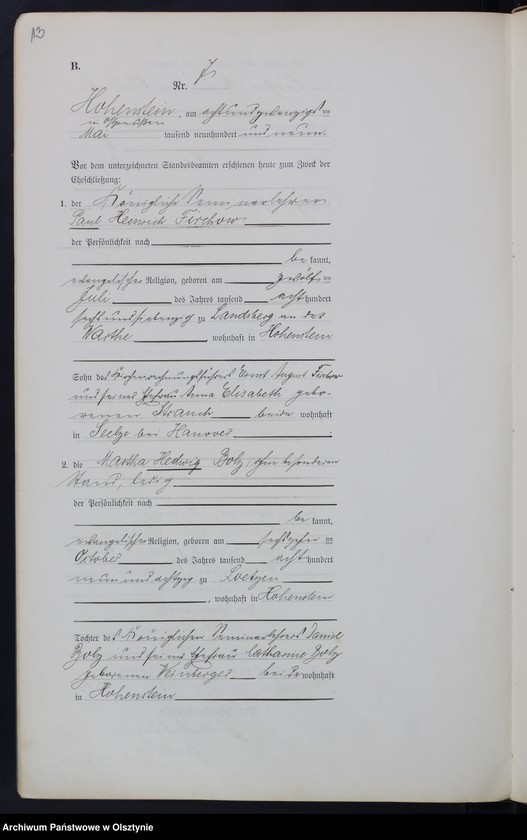 13
B.
Nr. 7.
Hohenstein, am achtundzwanzigsten
in Ostpreußen
Mai tausend neunhundert und neun.
Vor dem unterzeichneten Standesbeamten erschienen heute zum Zweck der
Eheschließung:
1. der Königliche Seminarlehrer
Paul Heinrich Firchow
der Persönlichkeit nach
be kannt,
evangelischer Religion, geboren am zwölften
Juli des Jahres tausend acht hundert
sechsundsiebenzig zu Landsberg an der
Warthe, wohnhaft in Hohenstein
Sohn des Ernst August Firchow
und seiner Ehefrau Anna Elisabeth gebo-
renen Strauch beide wohnhaft
in Seelze bei Hanover.
2. die Martha Hedwig Boly, ohne besonderen
Stand, ledig
der Persönlichkeit nach
be kannt,
evangelischer Religion, geboren am sechszehnten
October des Jahres tausend acht hundert
neunundachtzig zu Loetzen
, wohnhaft in Hohenstein
Tochter des Königlichen Seminarlehrers Daniel
Boly und seiner Ehefrau Catharine Boly
geborenen Weinberger beide wohnhaft
in Hohenstein
Archiwum Państwowe w Olsztynie